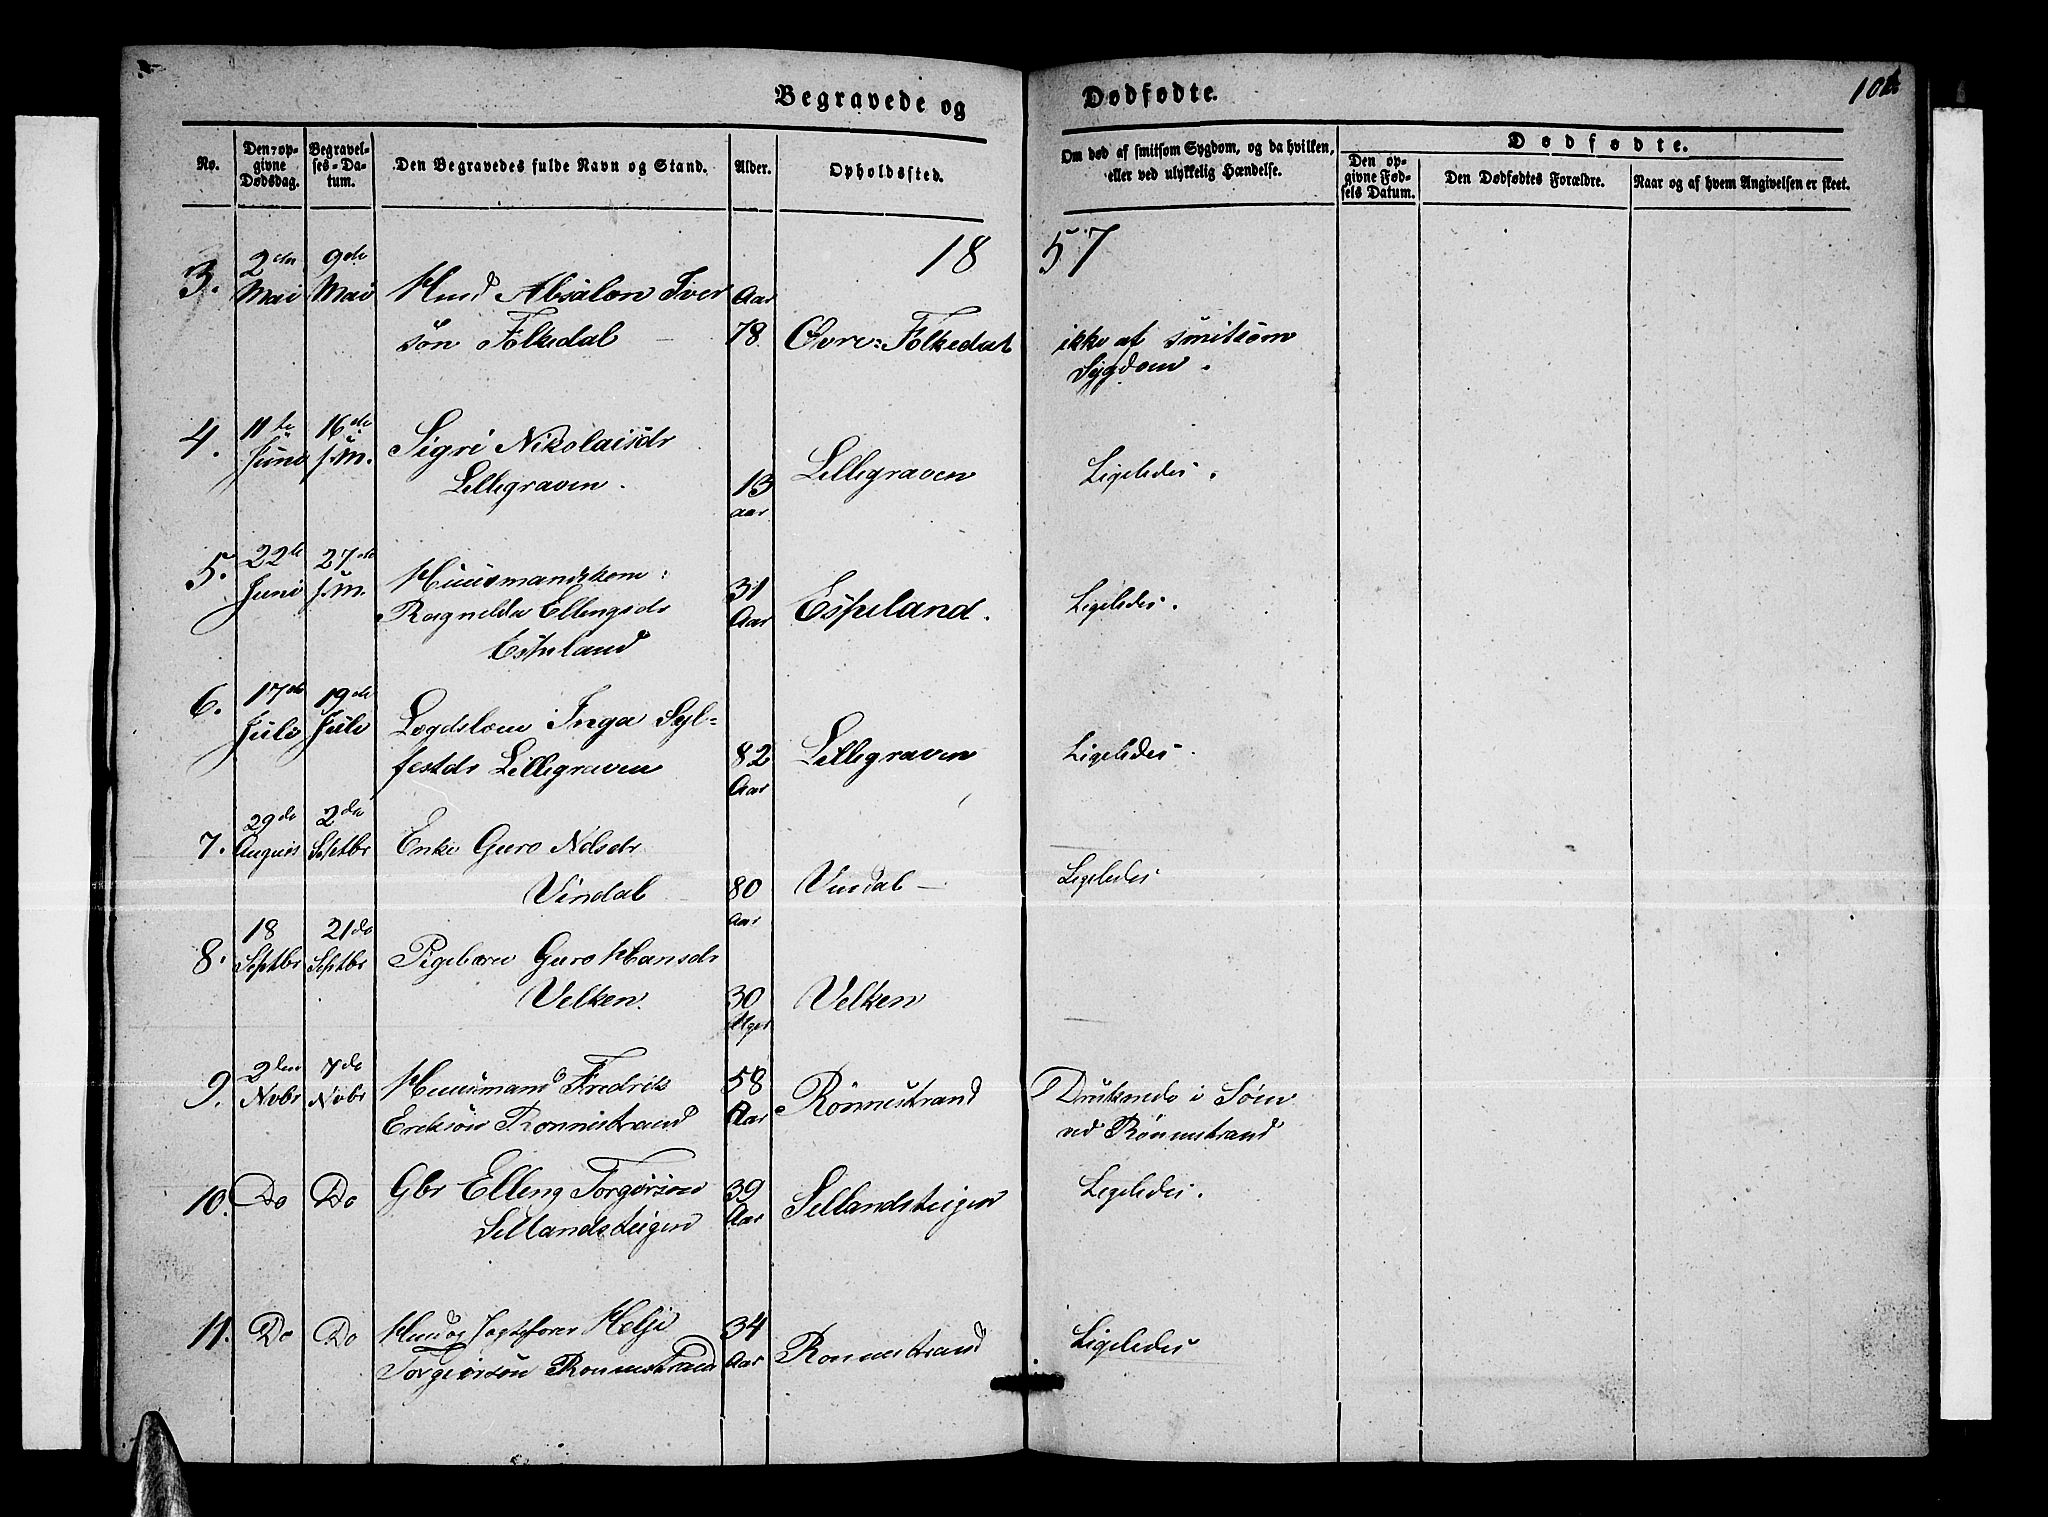 Begravede og Dødfødte.
No.
Den opgivne Dødsdag.
Begravelses-Datum.
Den Begravedes fulde Navn og Stand.
Alder.
Opholdssted.
Om død af smitsom Sygdom, og da hvilken, eller ved ulykkelig Hændelse.
Dødfødte.
Den opgivne Fødsels Datum.
Den Dødfødtes Forældre.
Naar og af hvem Angivelsen er skeet.
18 57
3.
2den Mai
9de Mai
Absalon Iver
søn Folkedal
Aar
78.
Øvre-Folkedal
ikke af smitsom
Sygdom.
4.
11te Juni
16de s.M.
Sigri Nikolaisdr
Lillegraven.
13
aar
Lillegraven
Ligeledes.
5.
22de Juni
27de s.M.
Huusmandskone:
Ragnilda Ellingsdr
Espeland
31
Aar
Espeland.
Ligeledes.
6.
17de Juli
19de Juli
Lægdslem Inga Syl-
festdr Lillegraven
82
Aar
Lillegraven
Ligeledes.
7.
29de August
2den Septbr
Enke Guro Nelsdr
Vindal
80
Aar
Vindal
Ligeledes
8.
18 Septbr
21de Septbr
Pigebarn Guro Hansdr
Velken.
30
Velken
9.
2den Novbr
7de Novbr
Huusmand Fredrik
Eriksøn Rønnestrand
58
Aar
Rønnestrand
Druknede i Søen
ved Rønnestrand
10.
Do
Do
Gbr Elling Torgersøn
Sellandsteigen
39
Aar
Sellandsteigen
Ligeledes.
11.
Do
Do
og Jagtefører Helje
Torgeirsøn Ronnestrand
34
Aar
Ronnestrand
Ligeledes